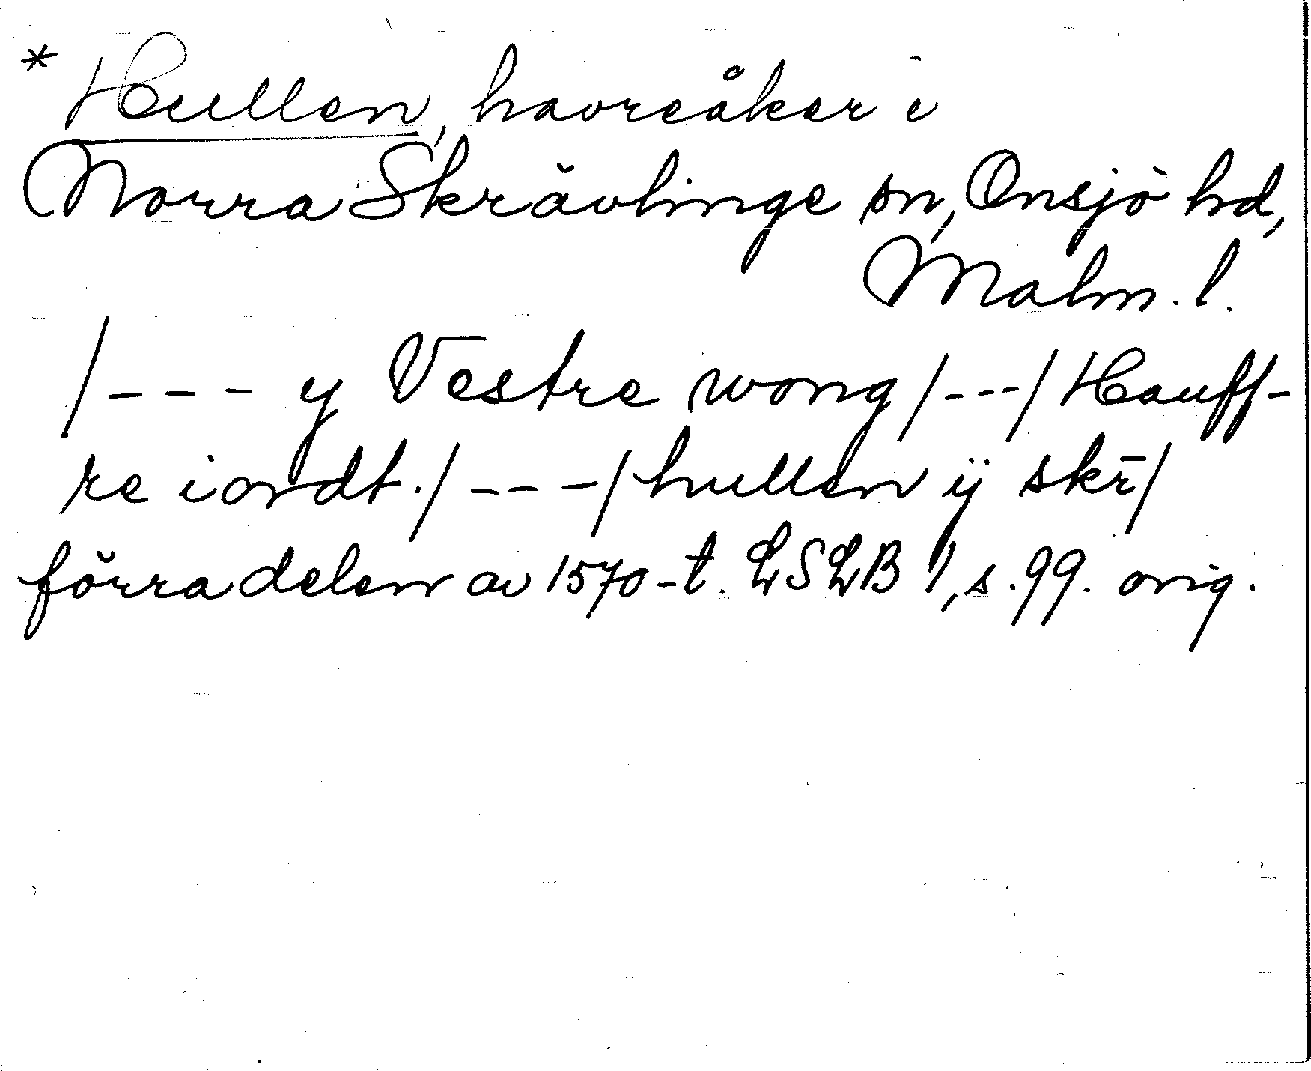 * Hullen, havreåker i
Norra Skrävlinge sn, Onsjö hd,
Malm. l.
/--- y Vestre wong /---/ Hauff-
re iordt. /---/ hullen ÿ skr̄/
förra delen av 1570-t. LSLB 1, s. 99. orig.